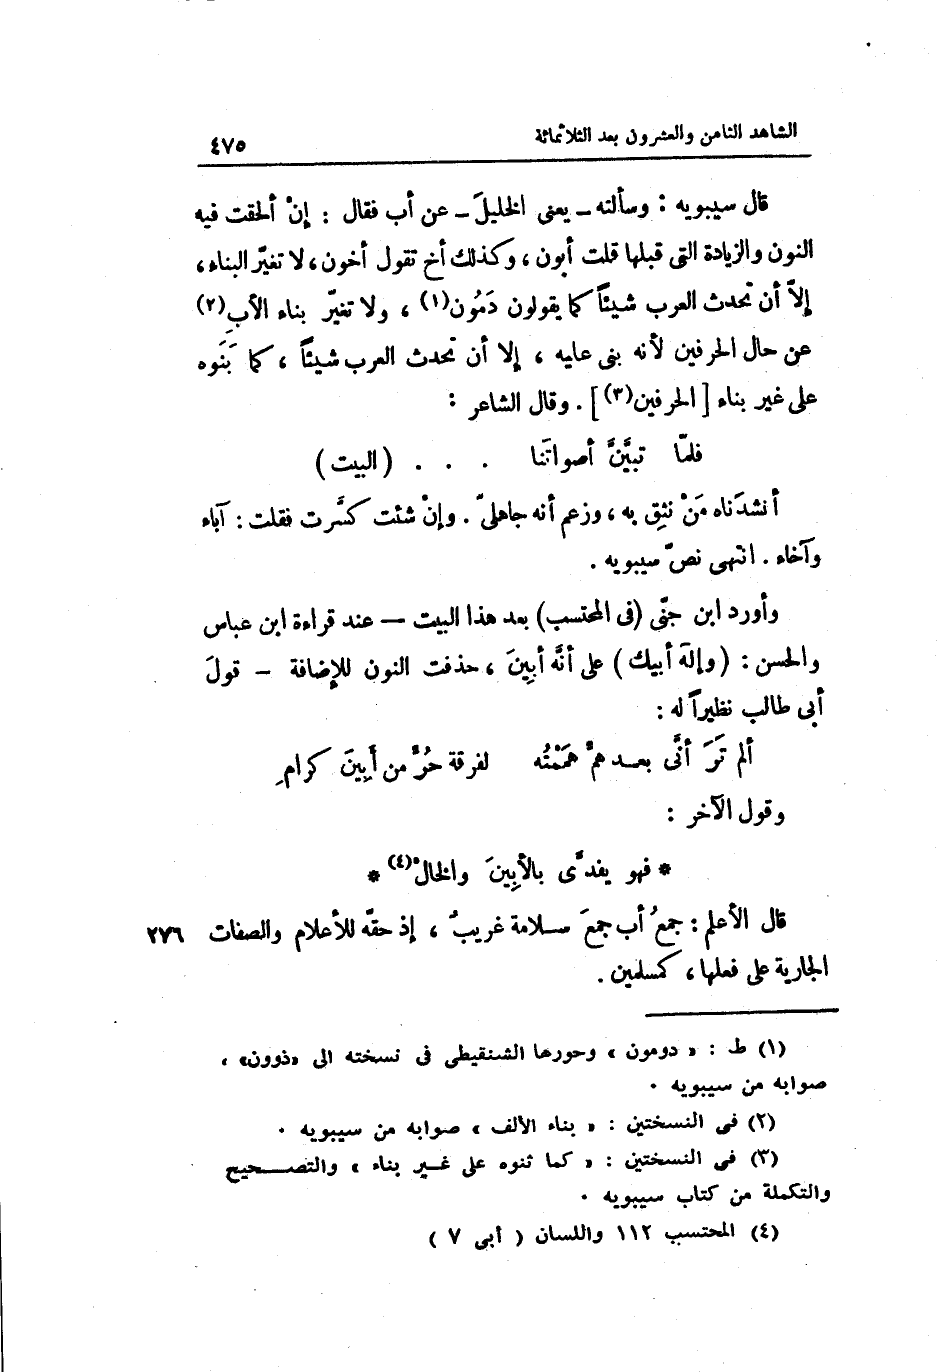 الشاهد الثامن والعشرون بعد الثلاثمائة ٤٧٥
قال سيبويه : وسألته ـ يعنى الخليلَ ـ عن أب فقال : إنْ ألحقت فيه
النون والزيادة التى قبلها قلت أبون ، وكذلك أخ تقول أخون ، لا تغيّر البناء ،
إلاّ أن تحدث العرب شيئاً كما يقولون دَمُون(١) ، ولا تغيّر بناء الأبِ(٢)
عن حال الحرفين لأنه بنى عليه ، إلا أن تحدث العرب شيئاً ، كما بَنَوه
على غير بناء [ الحرفين(٣) ] . وقال الشاعر :
فلمّا تبيَّنَّ أصواتَنا . . . (البيت)
أنشدَناه مَنْ نثِق به ، وزعم أنه جاهلىّ . وإنْ شئت كسَّرت فقلت : آباء
وآخاء . انتهى نصّ سيبويه .
وأورد ابن جنّى (فى المحتسب) بعد هذا البيت — عند قراءة ابن عباس
والحسن : (وإلٓه أبيك) على أنَّه أبِينَ ، حذفت النون للإضافة — قولَ
أبى طالب نظيراً له :
ألم تَرَ أنَّى بعـد همٍّ هَمَمْتُه لفرقة حُرٍّ من أَبِينَ كرامِ
وقول الآخر :
* فهو يفدَّى بالأبِينَ والخالْ(٤) *
قال الأعلم : جمعُ أب جمعَ سـلامة غريبٌ ، إذ حقّه للأعلام والصفات ٢٧٦
الجارية على فعلها ، كمسلمين .
(١) ط : « دومون » وحورها الشنقيطى فى نسخته الى «ذوون» ،
صوابه من سيبويه .
(٢) فى النسختين : « بناء الألف » صوابه من سيبويه .
(٣) فى النسختين : « كما ثنوه على غـير بناء » والتصـحيح
والتكملة من كتاب سيبويه .
(٤) المحتسب ١١٢ واللسان ( أبى ٧ )